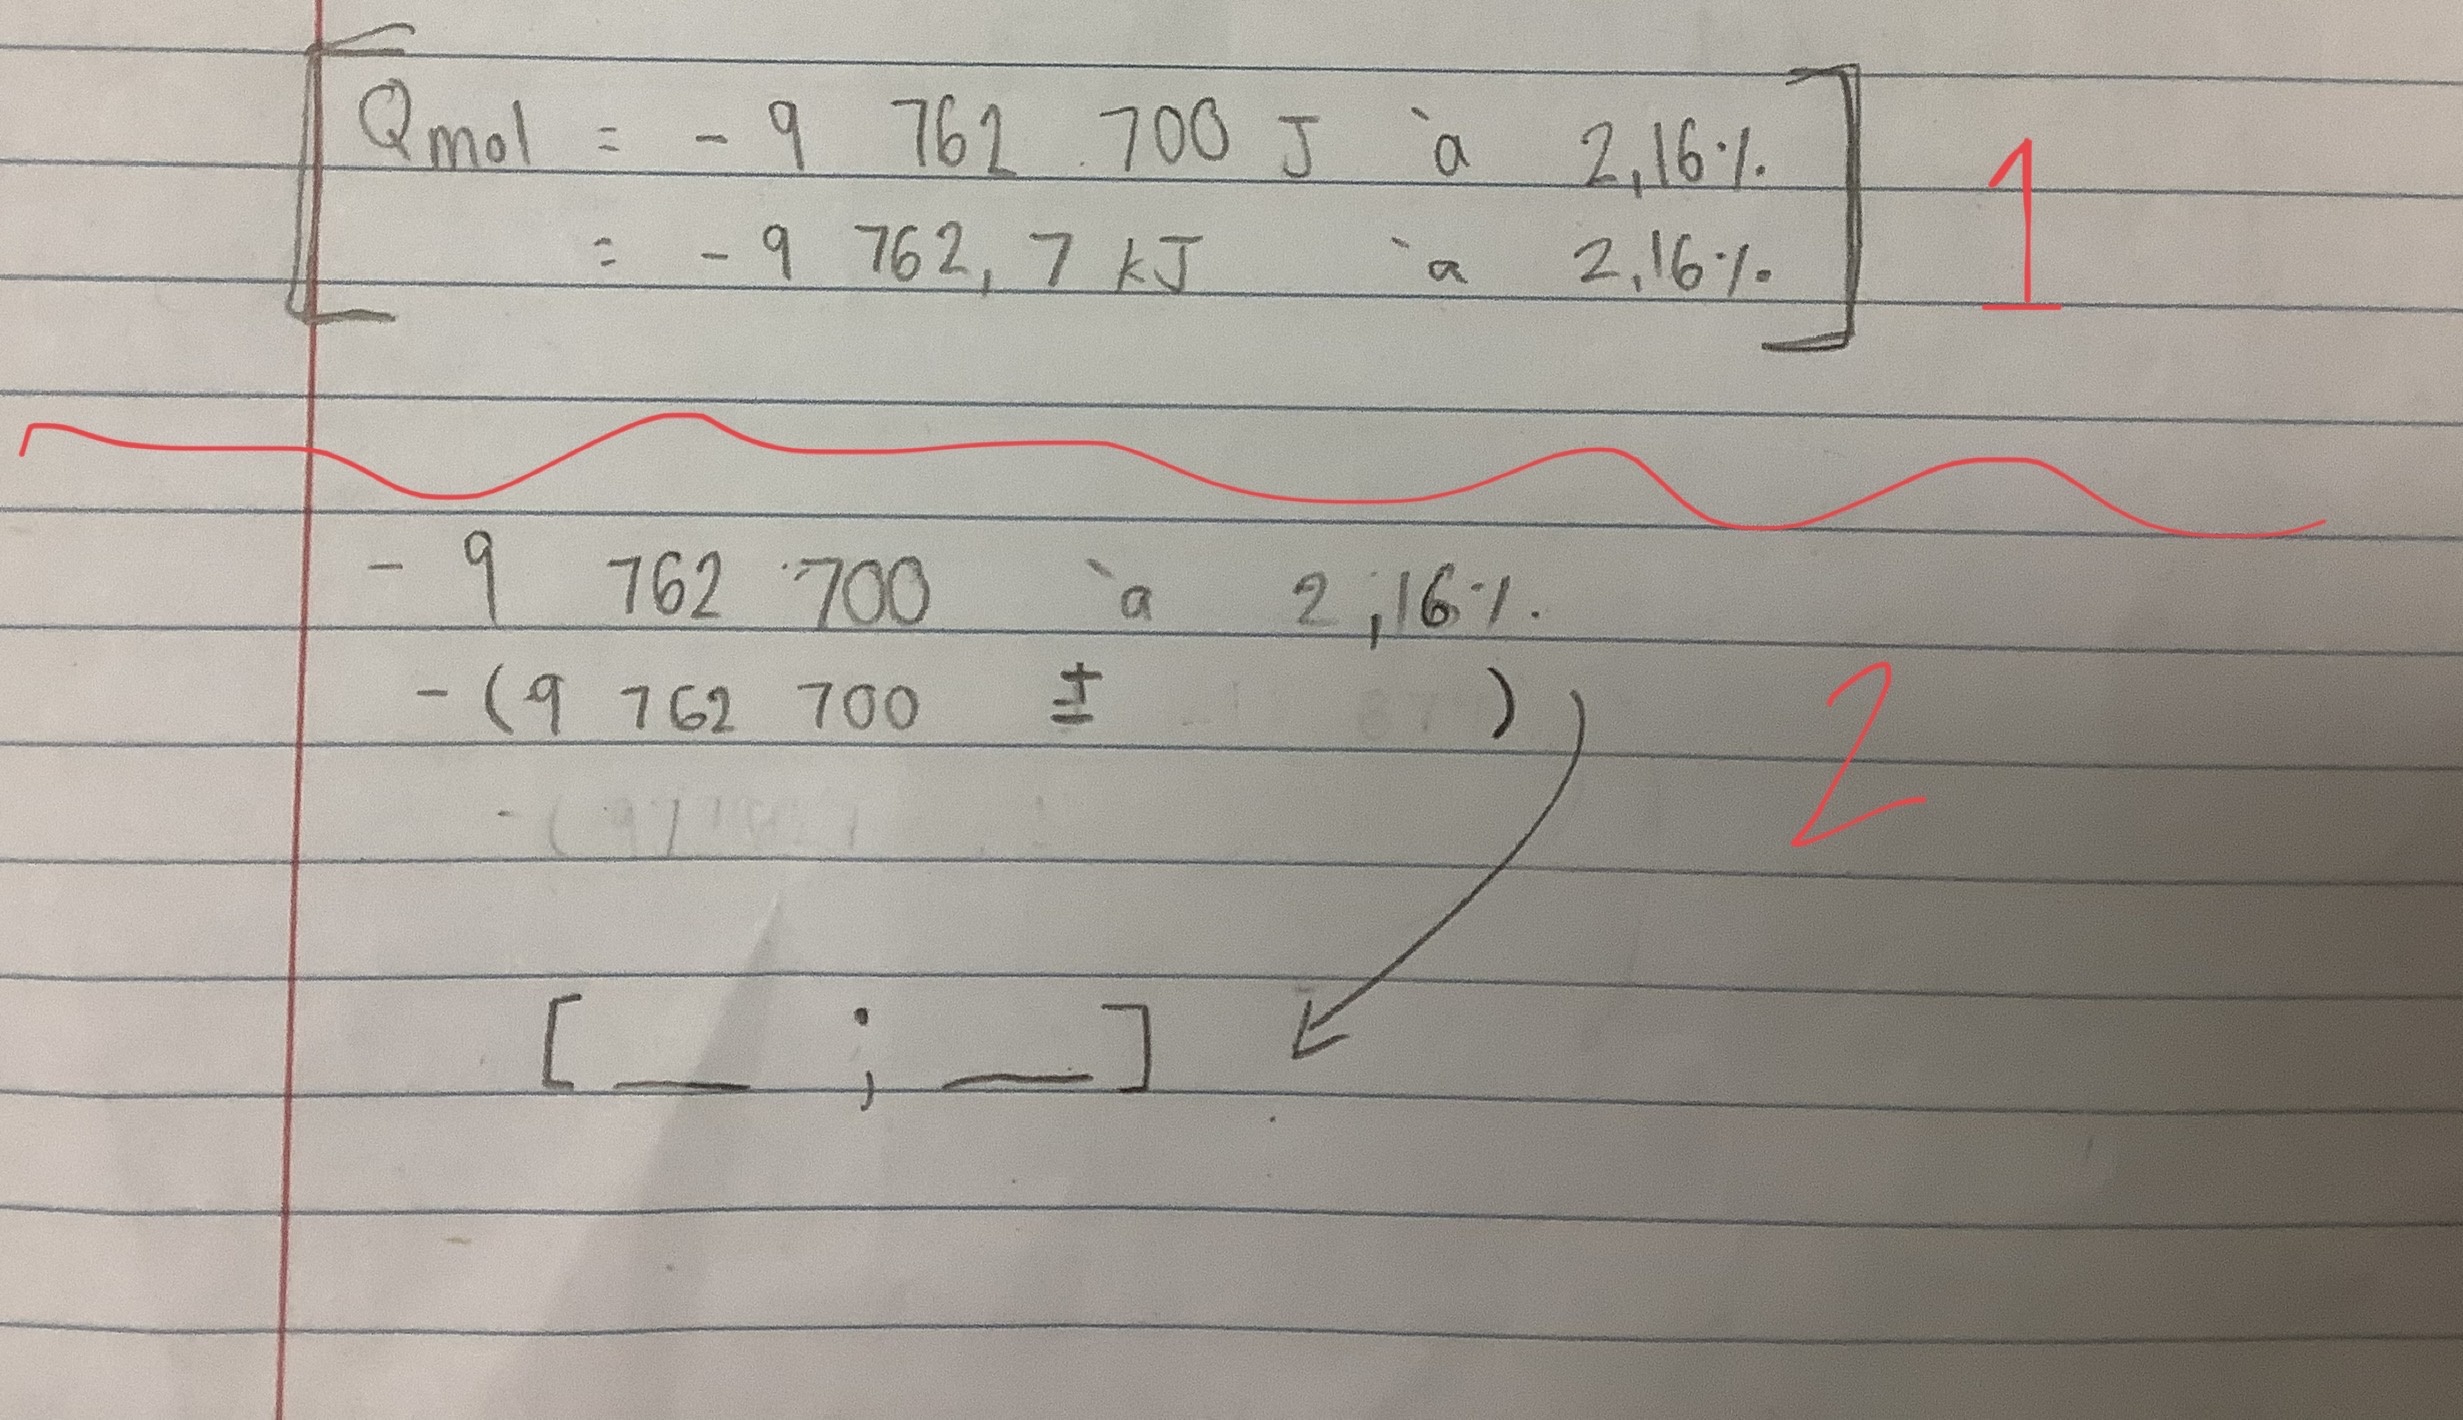 Qmol = - 9 762 700 J à 2,16%
= - 9 762,7 kJ à 2,16%
1
- 9 762 700 à 2,16%
- (9 762 700 ± )
2
[ __ ; __ ]